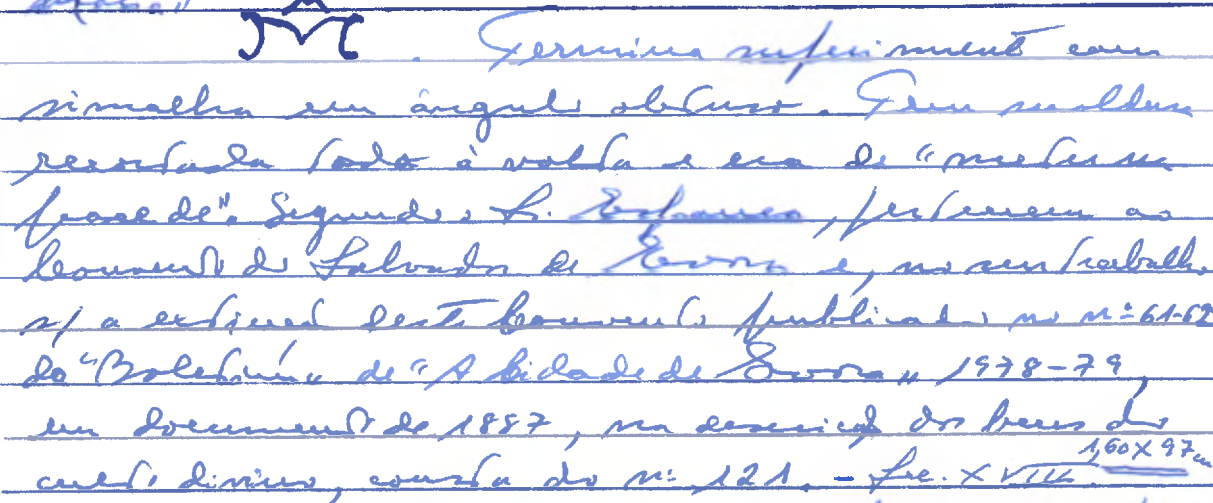 . Termina superiormente com
simalha em ângulo obtuso. Tem moldura
recortada toda à volta e era de "meter na
parede". Segundo o Dr. Espanca, pertenceu ao
Convento do Salvador de Évora e, no seu trabalho
s/ a extinção deste Convento publicado no nº 61-62
do "Boletim" de "A Cidade de Évora" 1978-79,
um documento de 1887, na descrição dos bens do
culto divino, consta do nº 121. - Séc. XVIII. 1,60 X 97 cm